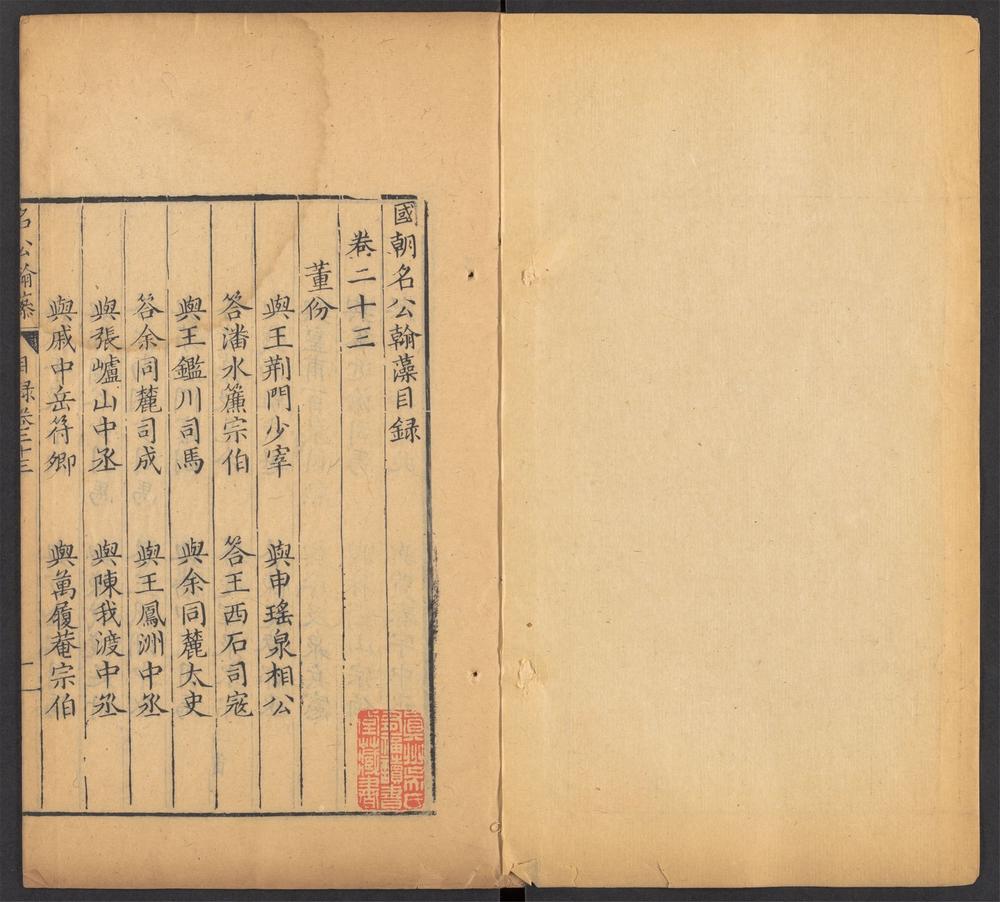 國朝名公翰藻目録
卷二十三
董份
與王荆門少宰 與申瑤泉相公
答潘水簾宗伯 答王西石司寇
與王鑑川司馬 與余同麓太史
答余同麓司成 與王鳳洲中丞
與張崌山中丞 與陳我渡中丞
與戚中岳符卿 與萬履菴宗伯
名公翰藻 目録卷二十三 一
真州吳氏
有福讀書
堂藏書